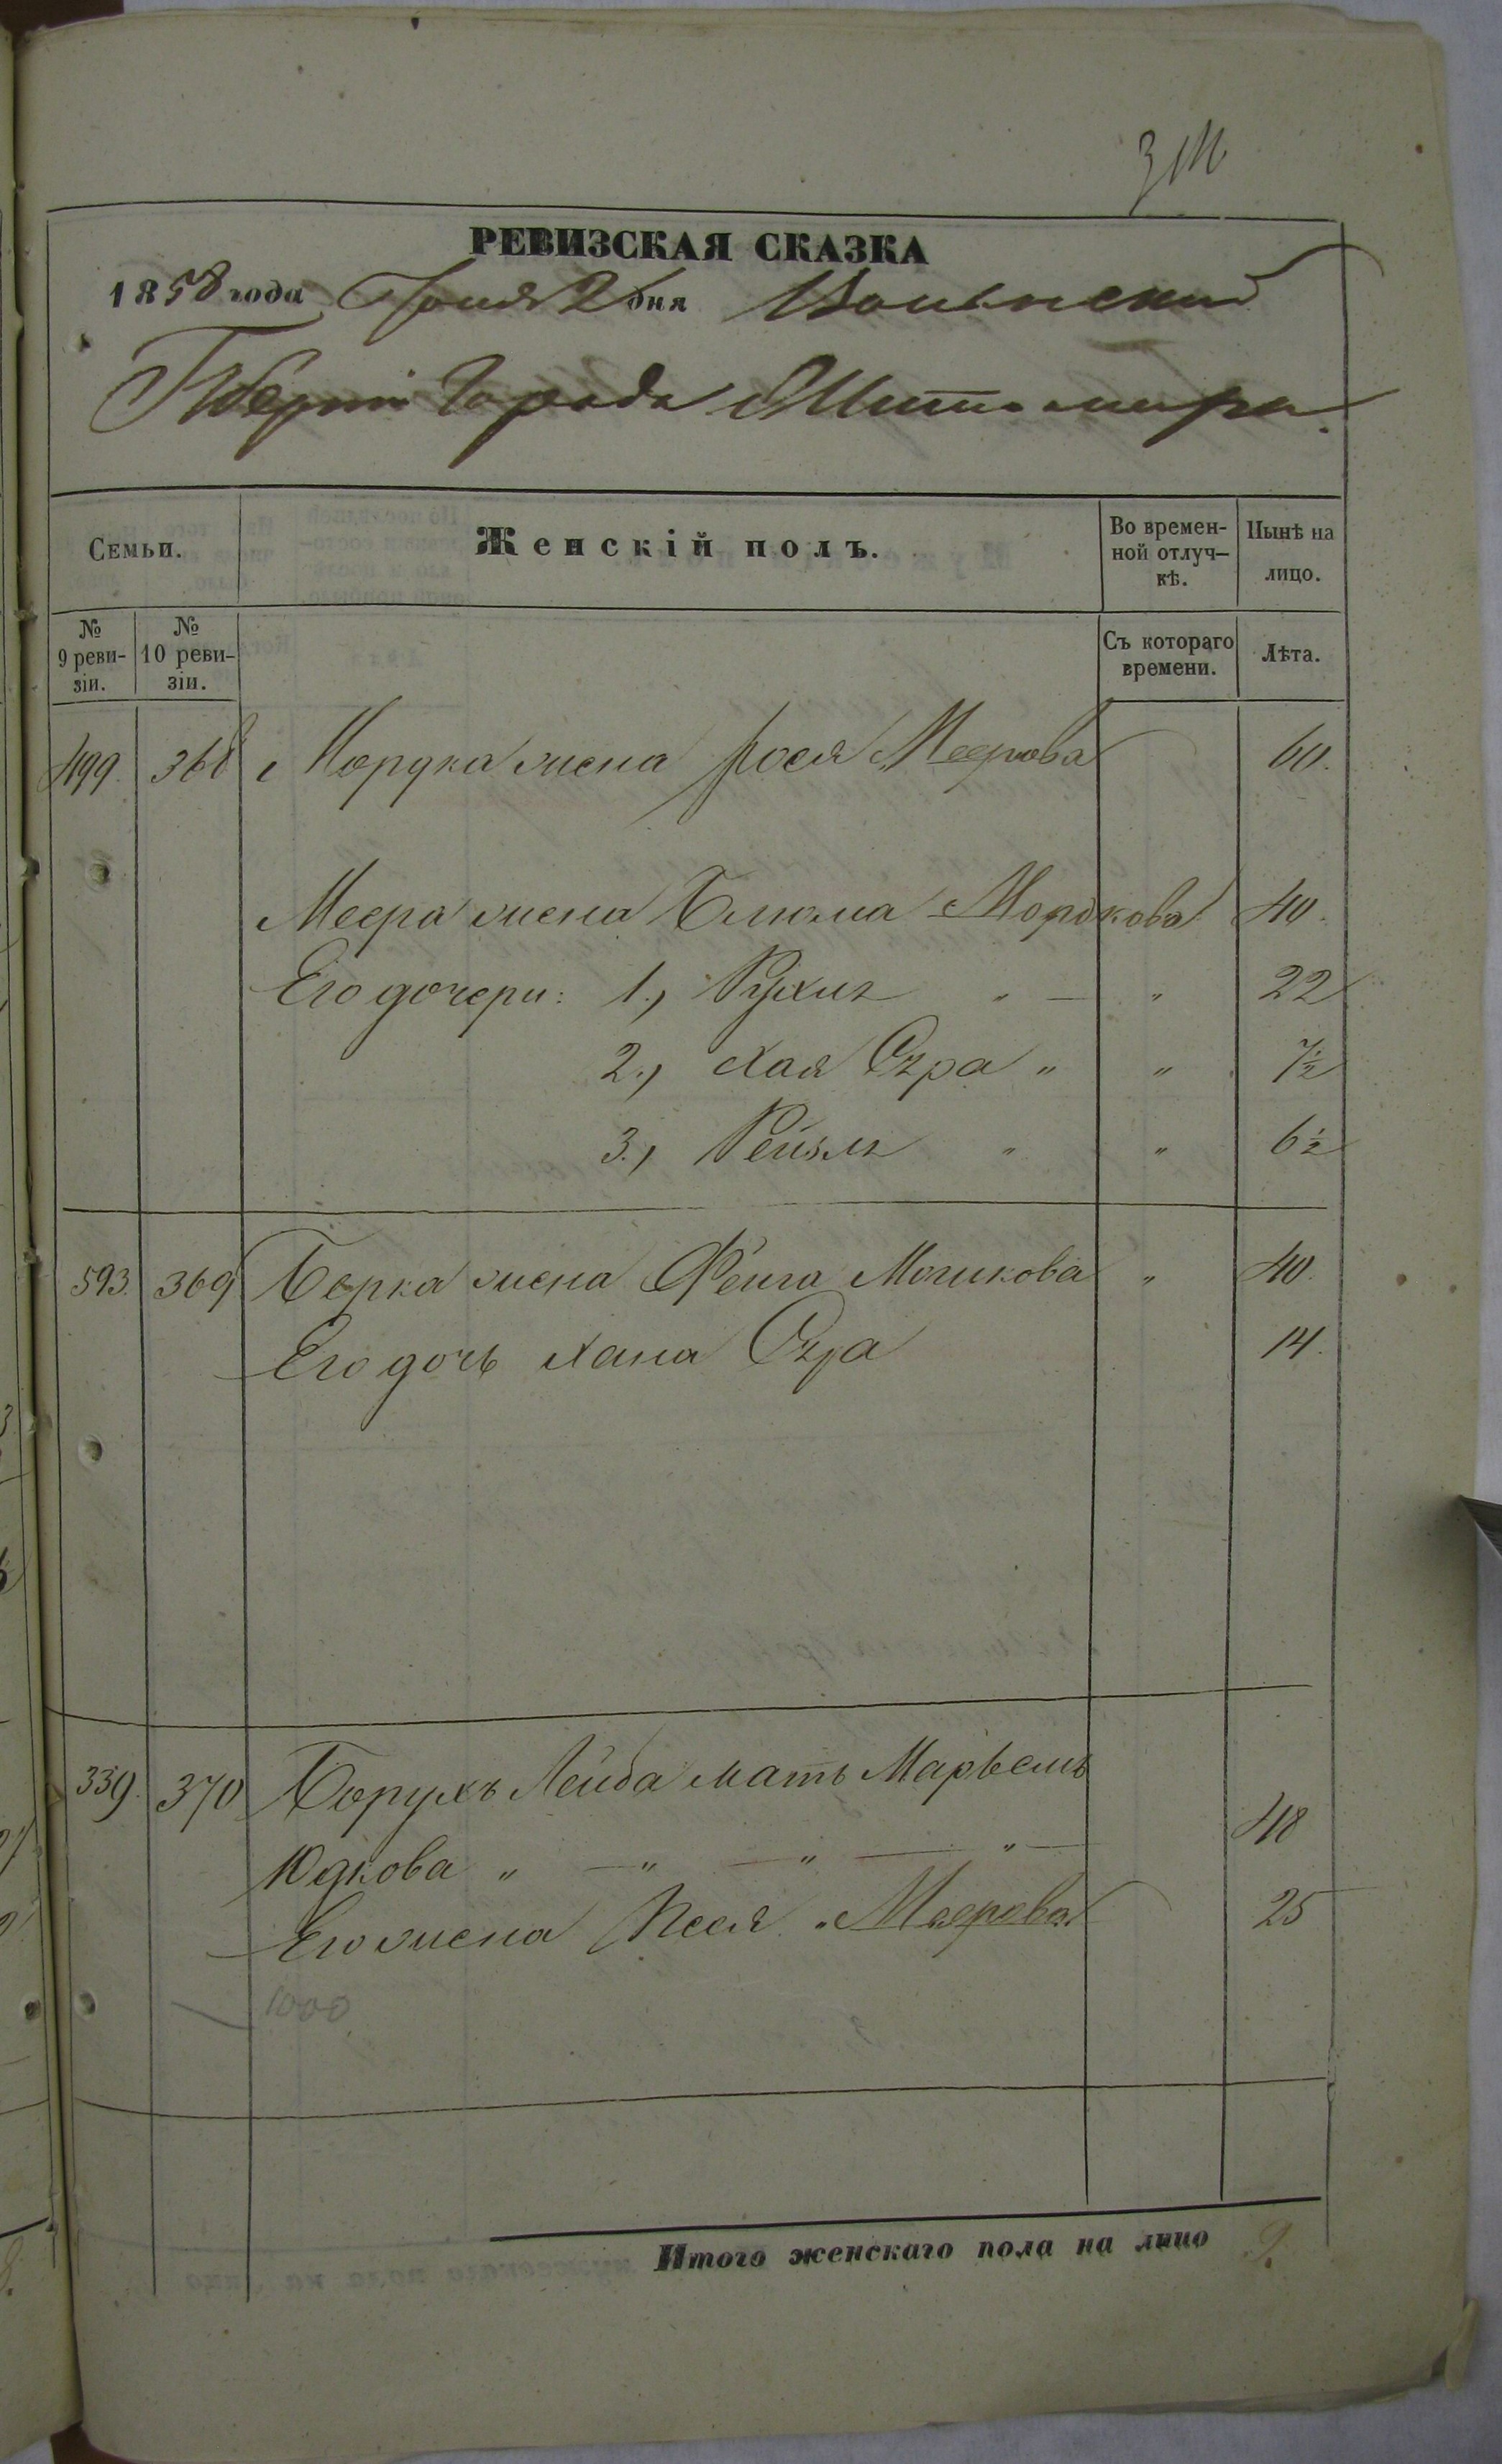 РЕВИЗСКАЯ СКАЗКА
1858 года Іюня 2 дня Волынской
Губерніи Города Житомира.
Семьи. Женскій полъ. Во времен-ной отлуч-кѣ. Нынѣ на лицо.
№ 9 реви-зіи. № 10 реви-зіи. Съ котораго времени. Лѣта.
499. 368 Мордка жена Рося Меерова 60.
Меера жена Блюма Мордкова 40.
Его дочери: 1., Рухля " — " 22
2., Хая Сура " " 7½
3., Рейзля " " 6½
593. 369 Берка жена Фейга Мошкова " 40.
Его дочь Хана Сура 14.
339. 370 Борухъ Лейба мать Марьемъ
Юдкова " — " — " — " — 48
Его жена Песя " Меерова 25
1000
Итого женскаго пола на лицо 9.